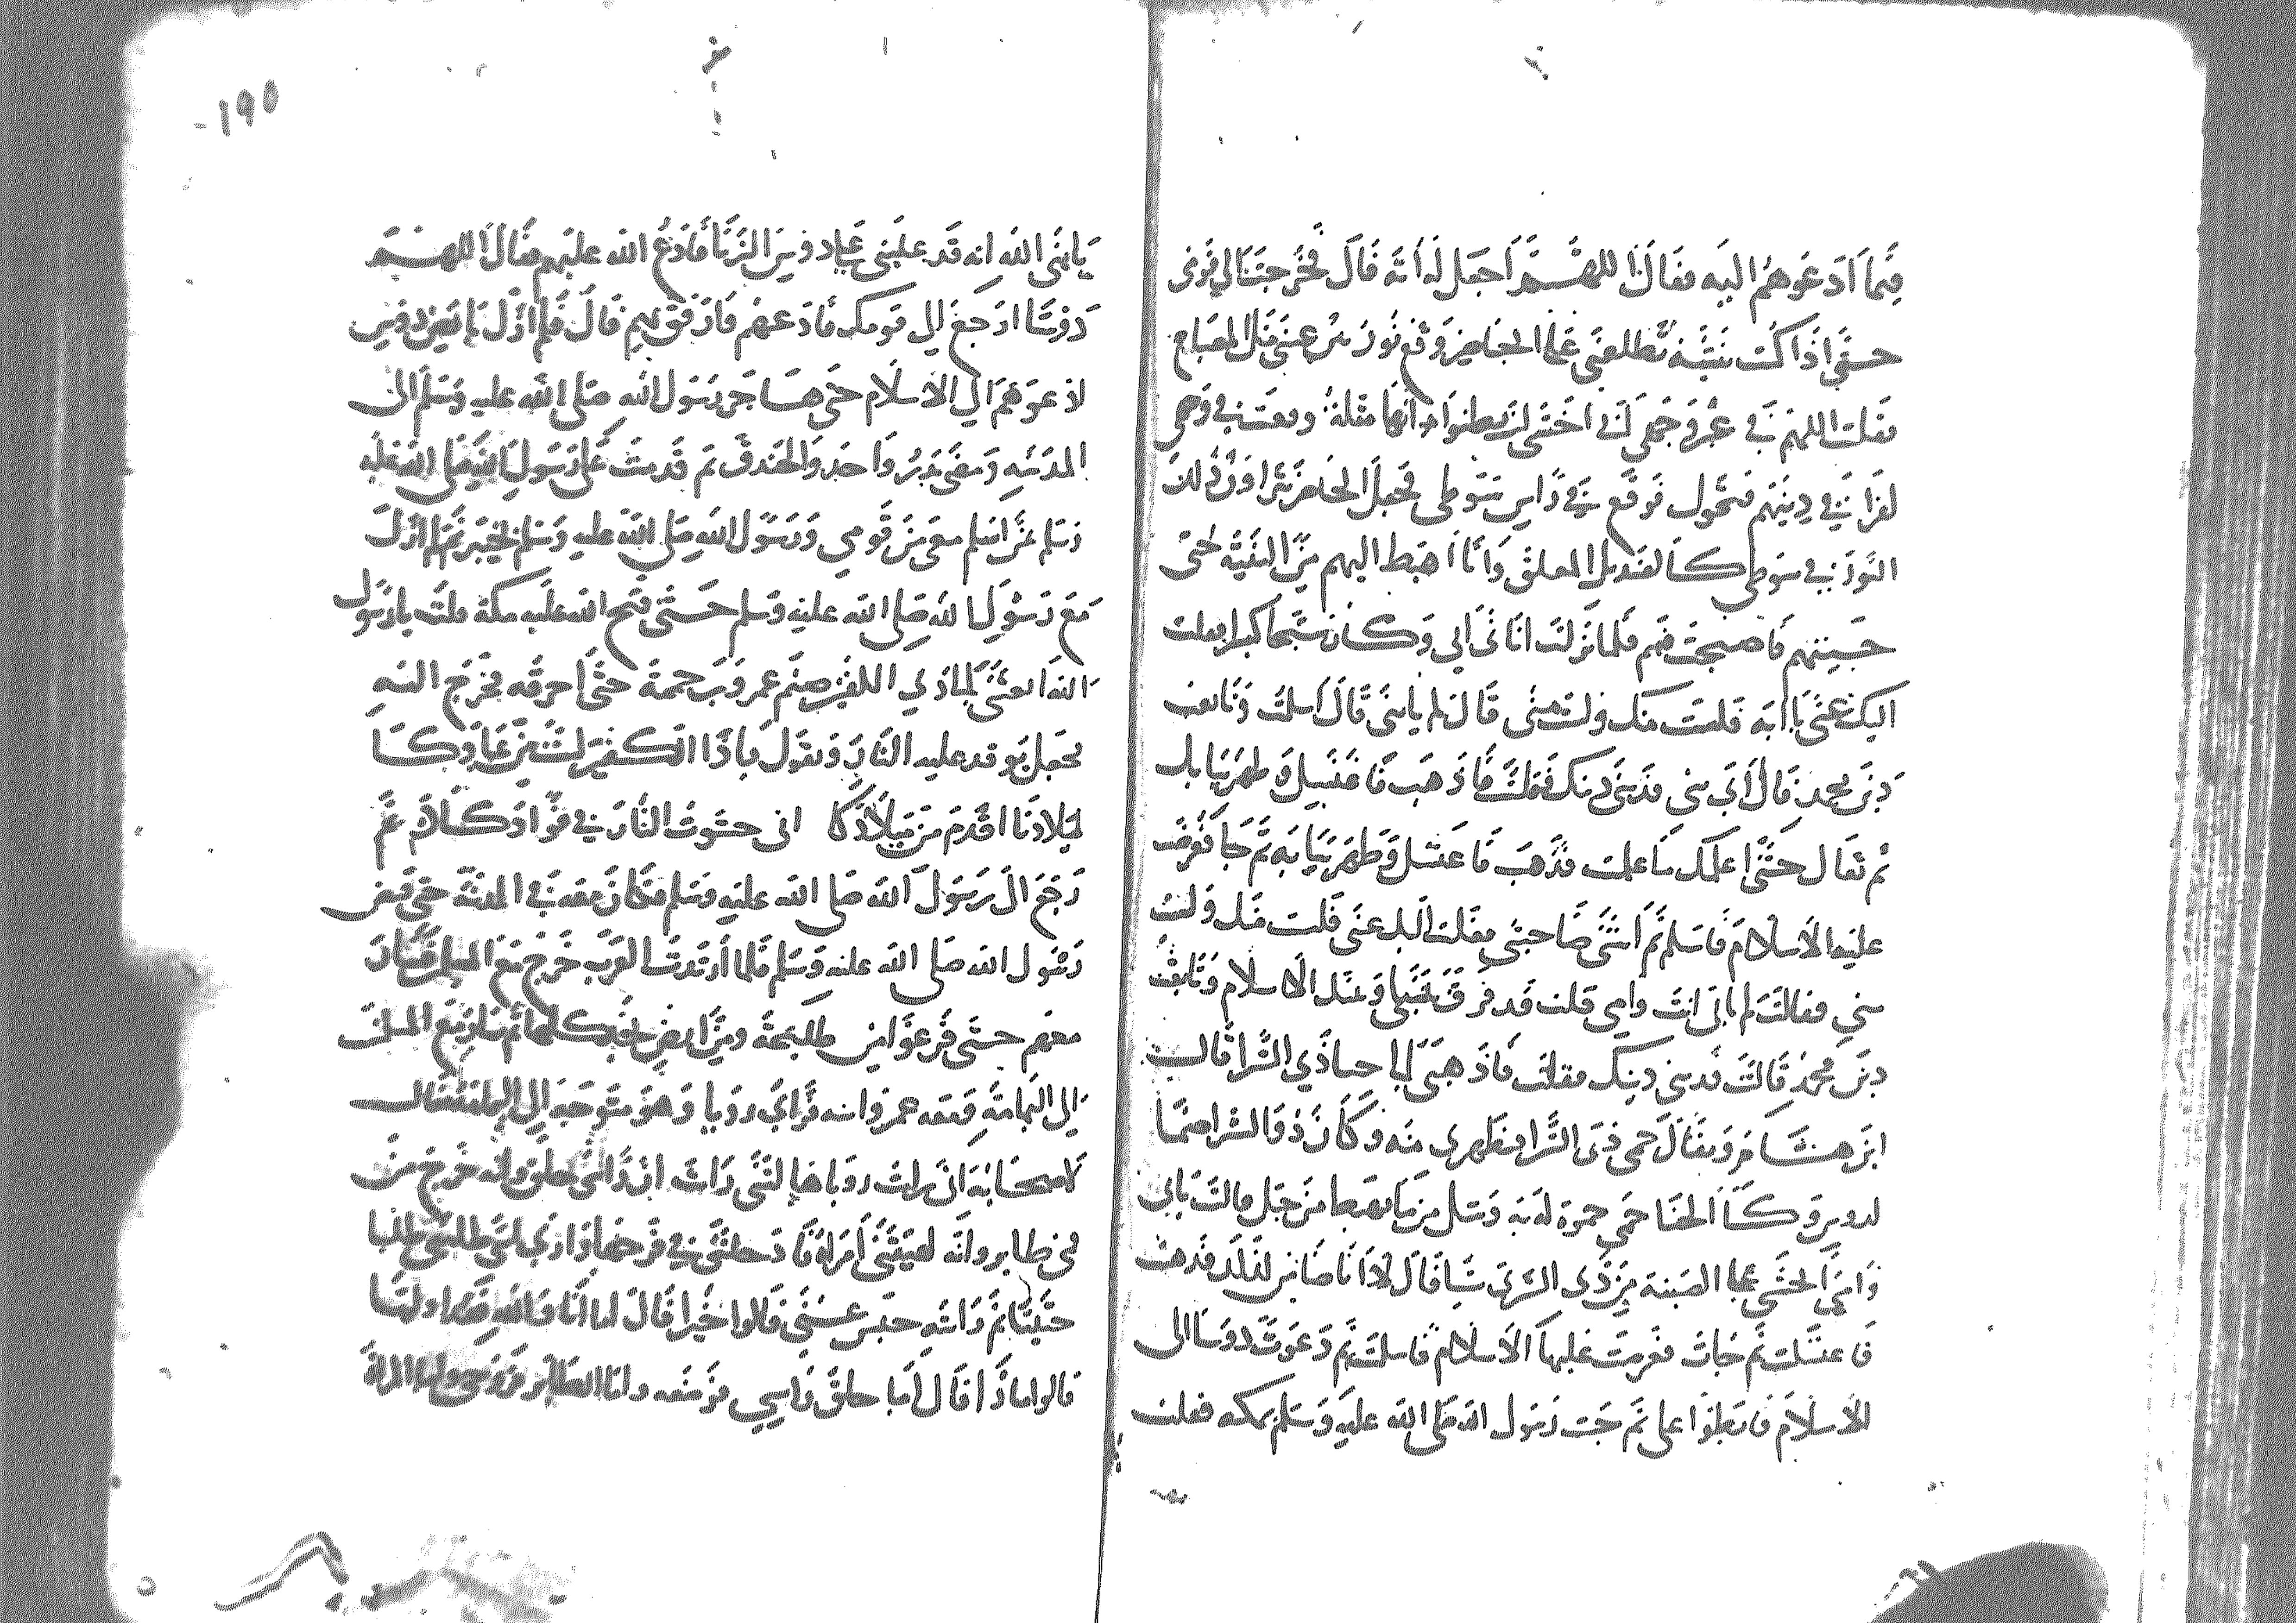 فيما ادعوهم اليه فقال اللهم اجعل له ايه قال فخرجت الي قومي
حتي اذا كنت بثنية تطلعني علي الحاضر وقع نور بين عيني مثل المصباح
فقلت اللهم في غير وجهي اني اخشي ان يظنوا انها مثلة وقعت في وجهي
لفراقي دينهم فتحول فوقع في راس سوطي فجعل الحاضر يتراون ذلك
النور في سوطي كالقنديل المعلق وانا اهبط اليهم من الثنيه حتي
جيتهم فاصبحت فيهم فلما نزلت اتاني ابي وكان شيخا كبيرا فقلت
اليك عني يا ابه فلست منك ولست مني قال لم يا بني قال اسلمت وتابعت
دين محمد قال اي بني فديني دينك فقلت فاذهب فاغتسل وطهر ثيابك
ثم تعال حتي اعلمك ما علمت فذهب فاغتسل وطهر ثيابه ثم جا فعرضت
عليه الاسلام فاسلم ثم اتتني صاحبتي فقلت اليك عني فلست منك ولست
مني فقالت لم بابي انت وامي قلت قد فرق بيني وبينك الاسلام وتابعت
دين محمد قالت فديني دينك فقلت فاذهبي الي حسا ذي الشرا قالت
ابن هشام ويقال حمي ذي الشرا فتطهري منه وكان ذو الشرا صنما
لدوس وكان الحنا حمي حموه له به وشل من ما يهبط من جبل قالت بابي
وامي اتخشي علي الصبية من ذي الشري شيا قال لا انا ضامن لذلك فذهبت
فاغتسلت ثم جات فعرضت عليها الاسلام فاسلمت ثم دعوت دوسا الي
الاسلام فابطوا علي ثم جيت رسول الله صلي الله عليه وسلم بمكه فقلت
190
يا نبي الله انه قد غلبني علي دوس الزنا فادع الله عليهم فقال اللهم
دوسا ارجع الي قومك فادعهم وارفق بهم قال فلم ازل بارض دوس
ادعوهم الي الاسلام حتي هاجر رسول الله صلي الله عليه وسلم الي
المدينه ومضي بدر واحد والخندق ثم قدمت علي رسول الله صلي الله عليه
وسلم بمن اسلم معي من قومي ورسول الله صلي الله عليه وسلم بخيبر ثم لم ازل
مع رسول الله صلي الله عليه وسلم حتي فتح الله عليه مكة قلت يا رسول
الله ابعثني الي ذي الكفين صنم عمرو بن حممة حتي احرقه فخرج اليه
فجعل يوقد عليه النار ويقول يا ذا الكفين لست من عبادكا
ميلادنا اقدم من ميلادكا اني حشوت النار في فوادكا قال ثم
رجع الي رسول الله صلي الله عليه وسلم فكان معه في المدينة حتي قبض
رسول الله صلي الله عليه وسلم فلما ارتدت العرب خرج مع المسلمين فسار
معهم حتي فرغوا من طليحة ومن ارض نجد كلها ثم سار مع المسلمين
الي اليمامة ومعه عمرو ابنه فراي رويا وهو متوجه الي اليمامة فقال
لاصحابه اني رايت رويا فاعبروها لي رايت ان راسي حلق وانه خرج من
فمي طاير وانه لقيتني امراة فادخلتني في فرجها واري ابني طلبني طلبا
حثيثا ثم رايته حبس عني قالوا خيرا قال اما انا والله فقد اولتها
قالوا ماذا قال اما حلق راسي فوضعه واما الطاير فروحي واما المراة